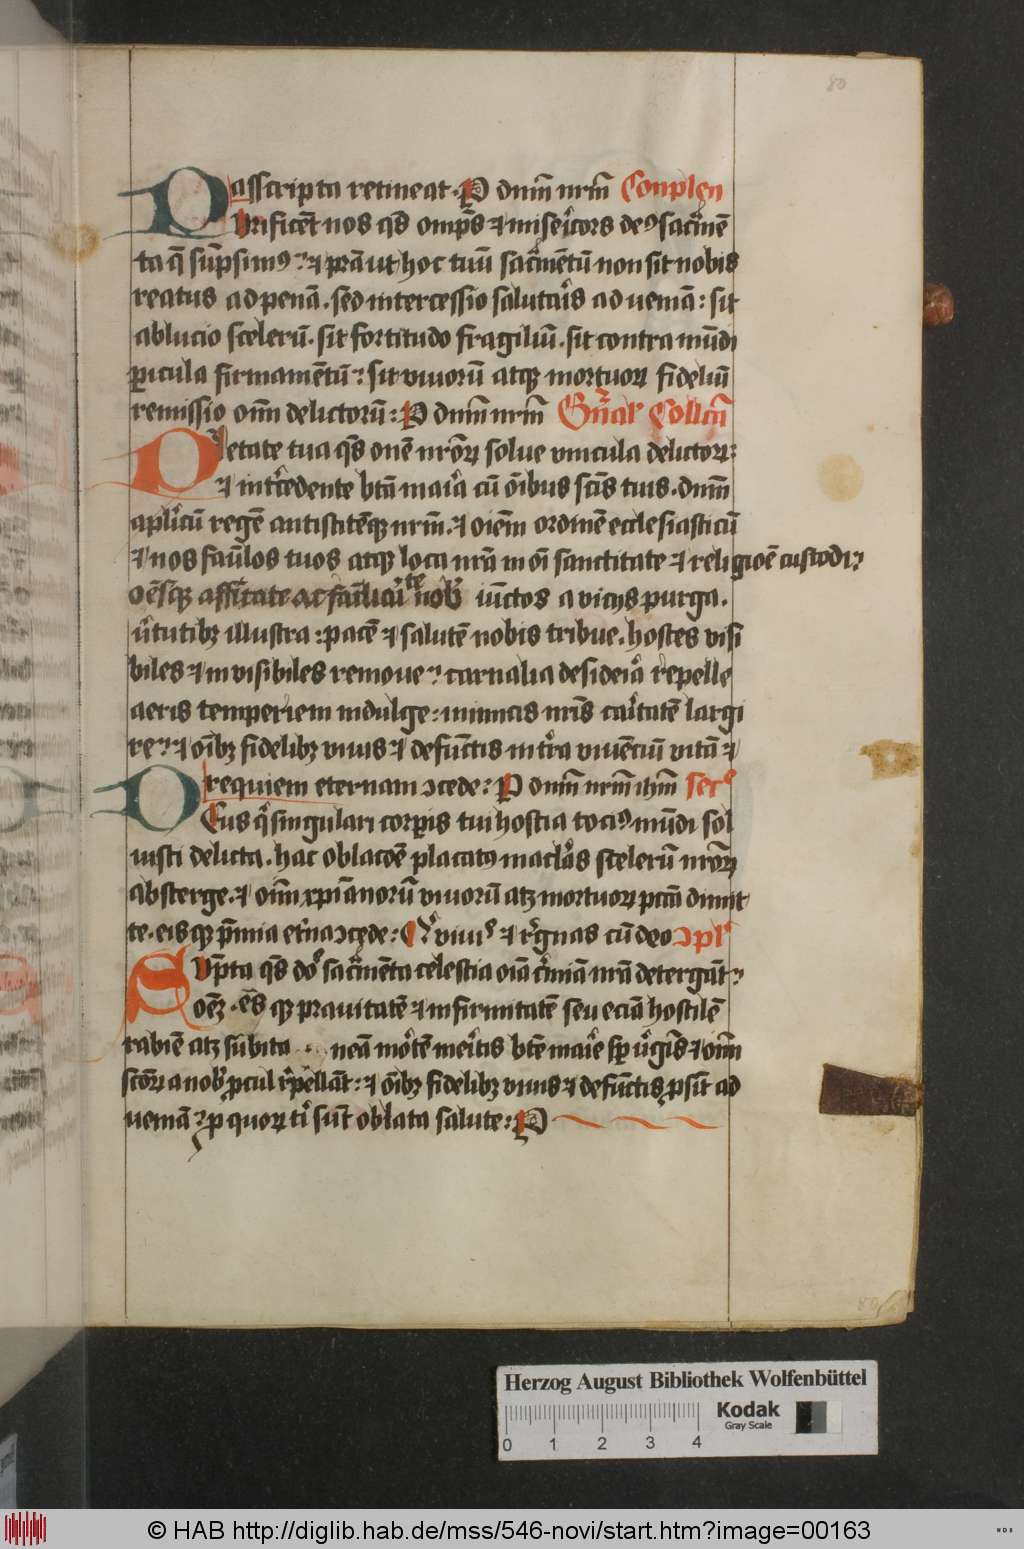 80
asscripta retineat. P dnm̄ nrm̄ Conplen
Purificet nos qs̄ omps̄ ⁊ misericors deꝯ sacmē
ta q̄ sūpsimꝯ ⁊ prā ut hoc tuū sacmentū non sit nobis
reatus ad penā. sed intercessio salutaris ad ueniā: sit
ablucio scelerū. sit fortitudo fragiliū. sit contra mūdi
picula firmamentū: sit viuorū atqꝫ mortuoꝝ fideliū
remissio om̄ delictorū: P dnm̄ nrm̄ Gn̄al' Collcā
Pietate tua qs̄ onē nroꝝ solue vincula delictoꝝ:
⁊ intercedente btā maria cū oībus scīs tuis. dnm̄
aplicū regē antistitēqꝫ nrm̄. ⁊ oīem ordinē ecclesiasticū
⁊ nos faūlos tuos atqꝫ loca nrā in oī sanctitate ⁊ religioē custodi:
oēsqꝫ affītate ac fāiliaritate nob' iūctos a vicijs purga.
ūtutibꝫ illustra: pacē ⁊ salutē nobis tribue. hostes visi
biles ⁊ inuisibiles remoue: carnalia desideria repelle
aeris temperiem indulge: inimicis nrīs caritatē largi
re: ⁊ oībꝫ fidelibꝫ viuis ⁊ defūctis in tra viuentiū vitā ⁊
requiem eternam ↄcede: P dnm̄ nrm̄ ihm̄ Secr'
Deus q' singulari corpis tui hostia tociꝯ mūdi sol
uisti delicta. hac oblacoē placatꝯ maclas scelerū nroꝝ
absterge. ⁊ om̄ xpianorū viuorū atꝫ mortuoꝝ pctā dimit
te. eisqꝫ pmia etna ↄcede: Q' viuis ⁊ regnas cū deo ↄpl'
Sūpta qs̄ dō sacmēta celestia oīa crimīa nrā detergāt:
oēꝫ.ēs qꝫ prauitatē ⁊ infirmitatē seu eciā hostilē
rabiē atꝫ subita neā mortē meritis btē marie sp uginis ⁊ om̄
scōꝝ a nob' pcul repellāt: ⁊ oībꝫ fidelibꝫ viuis ⁊ defūctis psit ad
ueniā: p quoꝝ ti' sūt oblata salute: P
Herzog August Bibliothek Wolfenbüttel
Kodak
Gray Scale
0 1 2 3 4
© HAB http://diglib.hab.de/mss/546-novi/start.htm?image=00163